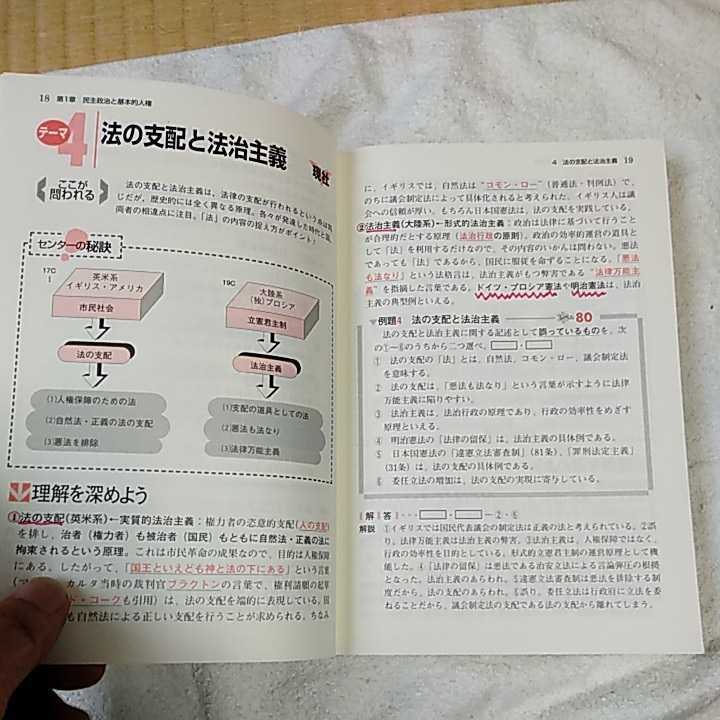 18 第1章 民主政治と基本的人権
テーマ4 法の支配と法治主義
現社
ここが
問われる
法の支配と法治主義は、法律の支配が行われるという点は同
じだが、歴史的には全く異なる原理。各々が発達した時代と国、
両者の相違点に注目。「法」の内容の捉え方がポイント!
センターの秘訣
17C
英米系
イギリス・アメリカ
市民社会
法の支配
(1)人権保障のための法
(2)自然法・正義の法の支配
(3)悪法を排除
19C
大陸系
(独)プロシア
立憲君主制
法治主義
(1)支配の道具としての法
(2)悪法も法なり
(3)法律万能主義
理解を深めよう
①法の支配(英米系)←実質的法治主義:権力者の恣意的支配(人の支配)
を排し、治者(権力者)も被治者(国民)もともに自然法・正義の法に
拘束されるという原理。これは市民革命の成果なので、目的は人権保障
にある。したがって、「国王といえども神と法の下にある」という言葉
カルタ当時の裁判官ブラクトンの言葉で、権利請願の起草
ド・コークも引用)は、法の支配を端的に表現している。国
も自然法による正しい支配を行うことが求められる。ちなみ
4 法の支配と法治主義 19
に、イギリスでは、自然法は"コモン・ロー"(普通法・判例法)で、
のちに議会制定法によって具体化されると考えられた。イギリス人は議
会への信頼が厚い。もちろん日本国憲法は、法の支配を実践している。
②法治主義(大陸系)←形式的法治主義:政治は法律に基づいて行うこと
が合理的だとする原理(法治行政の原則)。政治の効率的運営の道具と
して「法」を利用するだけなので、その内容のいかんは問わない。悪法
であっても「法」であるから、国民に服従を命ずることになる。「悪法
も法なり」という法格言は、法治主義がもつ弊害である"法律万能主
義"を指摘した言葉である。ドイツ・プロシア憲法や明治憲法は、法治
主義の典型例といえる。
例題4 法の支配と法治主義 80
法の支配と法治主義に関する記述として誤っているものを、次
の①~⑥のうちから二つ選べ。
① 法の支配の「法」とは、自然法、コモン・ロー、議会制定法
を意味する。
② 法の支配は、「悪法も法なり」という言葉が示すように法律
万能主義に陥りやすい。
③ 法治主義は、法治行政の原理であり、行政の効率性をめざす
原理といえる。
④ 明治憲法の「法律の留保」は、法治主義の具体例である。
⑤ 日本国憲法の「違憲立法審査制」(81条)、「罪刑法定主義」
(31条)は、法の支配の具体例である。
⑥ 委任立法の増加は、法の支配の実現に寄与している。
解答…・―②・⑥
解説 ①イギリスでは国民代表議会の制定法は正義の法と考えられている。②誤
り。法律万能主義は法治主義の弊害。③法治主義は、人権保障ではなく、
行政の効率性を目的としている。形式的立憲君主制の運営原理として機
能した。④「法律の留保」は悪法である治安立法による言論弾圧の根拠
となった。法治主義のあらわれ。⑤違憲立法審査制は悪法を排除する制
度だから、法の支配のあらわれ。⑥誤り。委任立法は行政府に立法を委
ねることだから、議会制定法の支配である法の支配から離れてしまう。